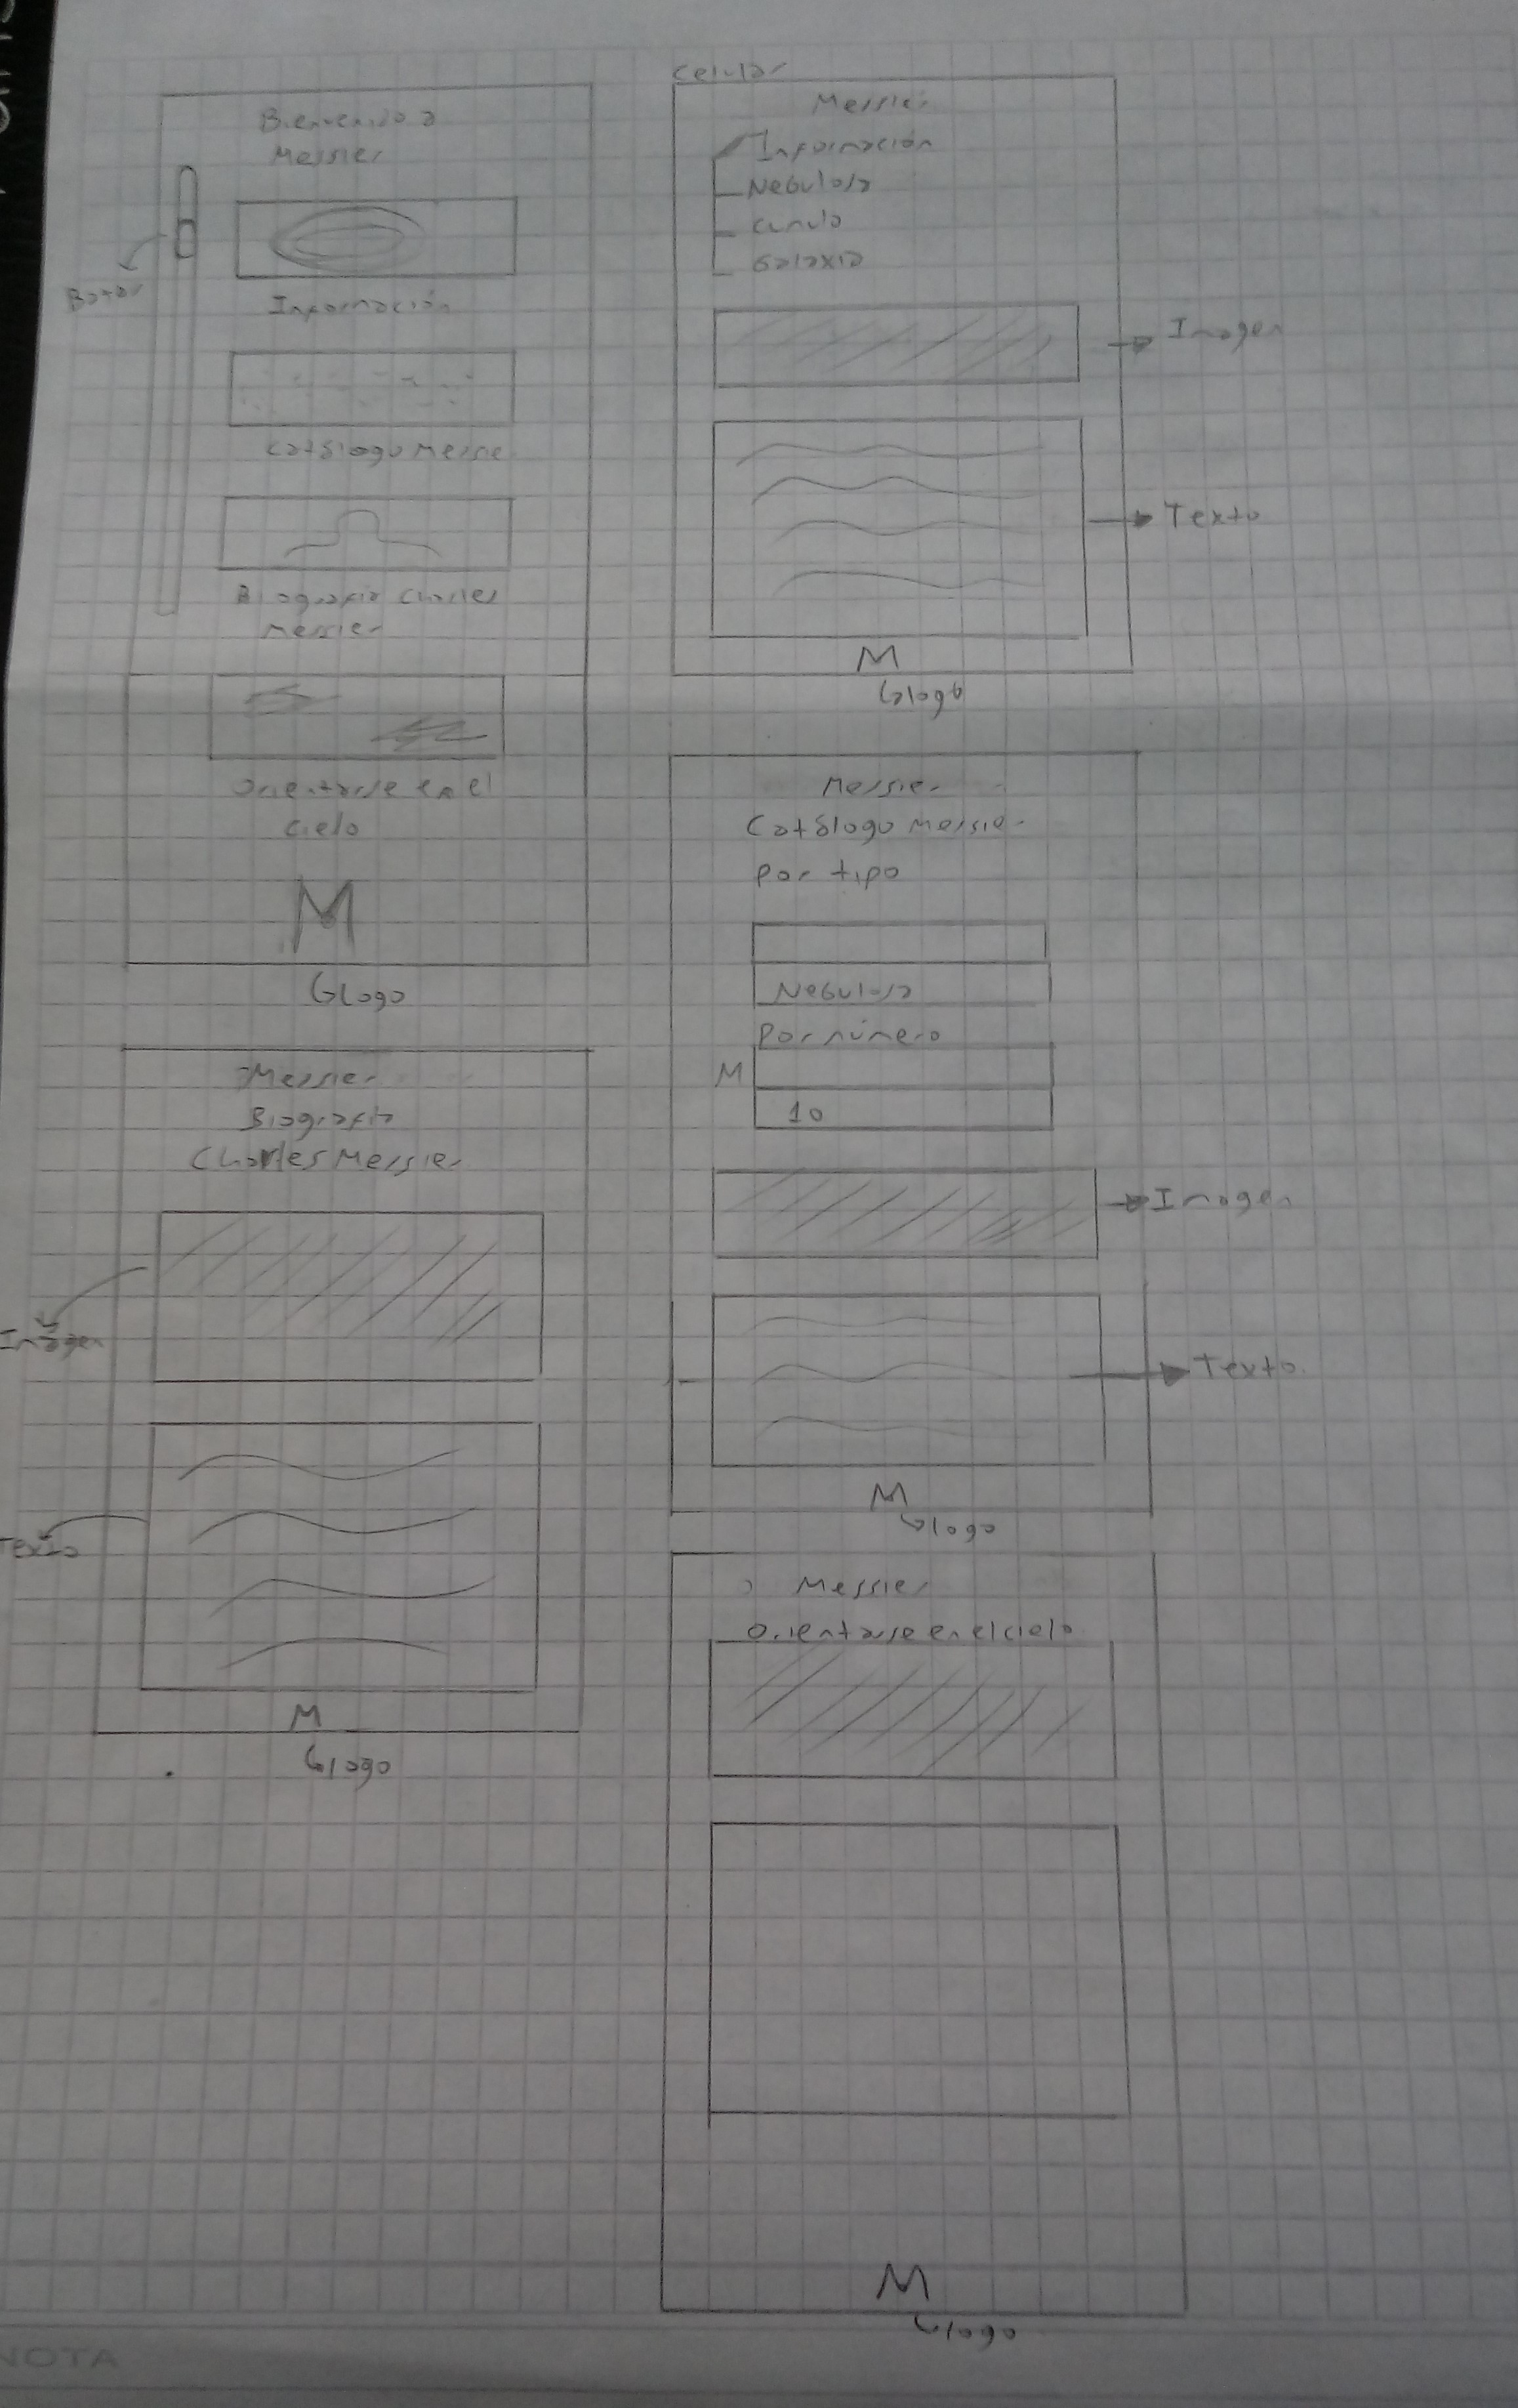 Bienvenido a
Messier
Boton
Información
Catálogo Messie
Biografía Charles
Messier
Orientarse en el
cielo
M
Logo
Messier
Biografía
Charles Messier
Imagen
Texto
M
logo
Celular
Messier
Información
Nebulosa
cumulo
Galaxia
Imagen
Texto
M
logo
Messier
Catálogo Messier
por tipo
Nebulosa
Por número
M
10
Imagen
Texto
M
logo
Messier
Orientarse en el cielo
M
logo
NOTA